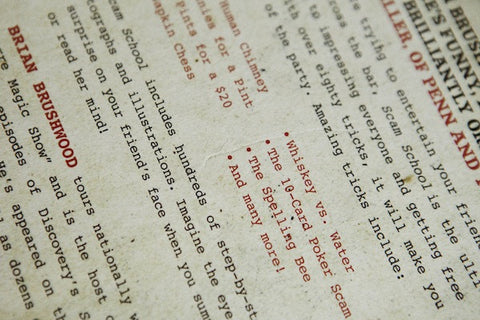 BRUSH
E'S FUNNY,
BRILLIANTLY
LLER, OF PENN AND
re trying to entertain your friend
ross the bar, Scam School is the ulti
to impressing everyone and getting free
th over eighty tricks, it will make you
of the party. Amazing tricks include:
Human Chimney
nnies for a Pint
Pints for a $20
apkin Chess
• Whiskey vs. Water
• The 10-Card Poker Scam
• The Spelling Bee
• And many more!
Scam School includes hundreds of step-by-st
tographs and illustrations. Imagine the eye
surprise on your friend's face when you sum
or read her mind!
BRIAN BRUSHWOOD tours nationally w
re Magic Show" and is the host o
episodes of Discovery's S
e's appeared on th
l as dozens